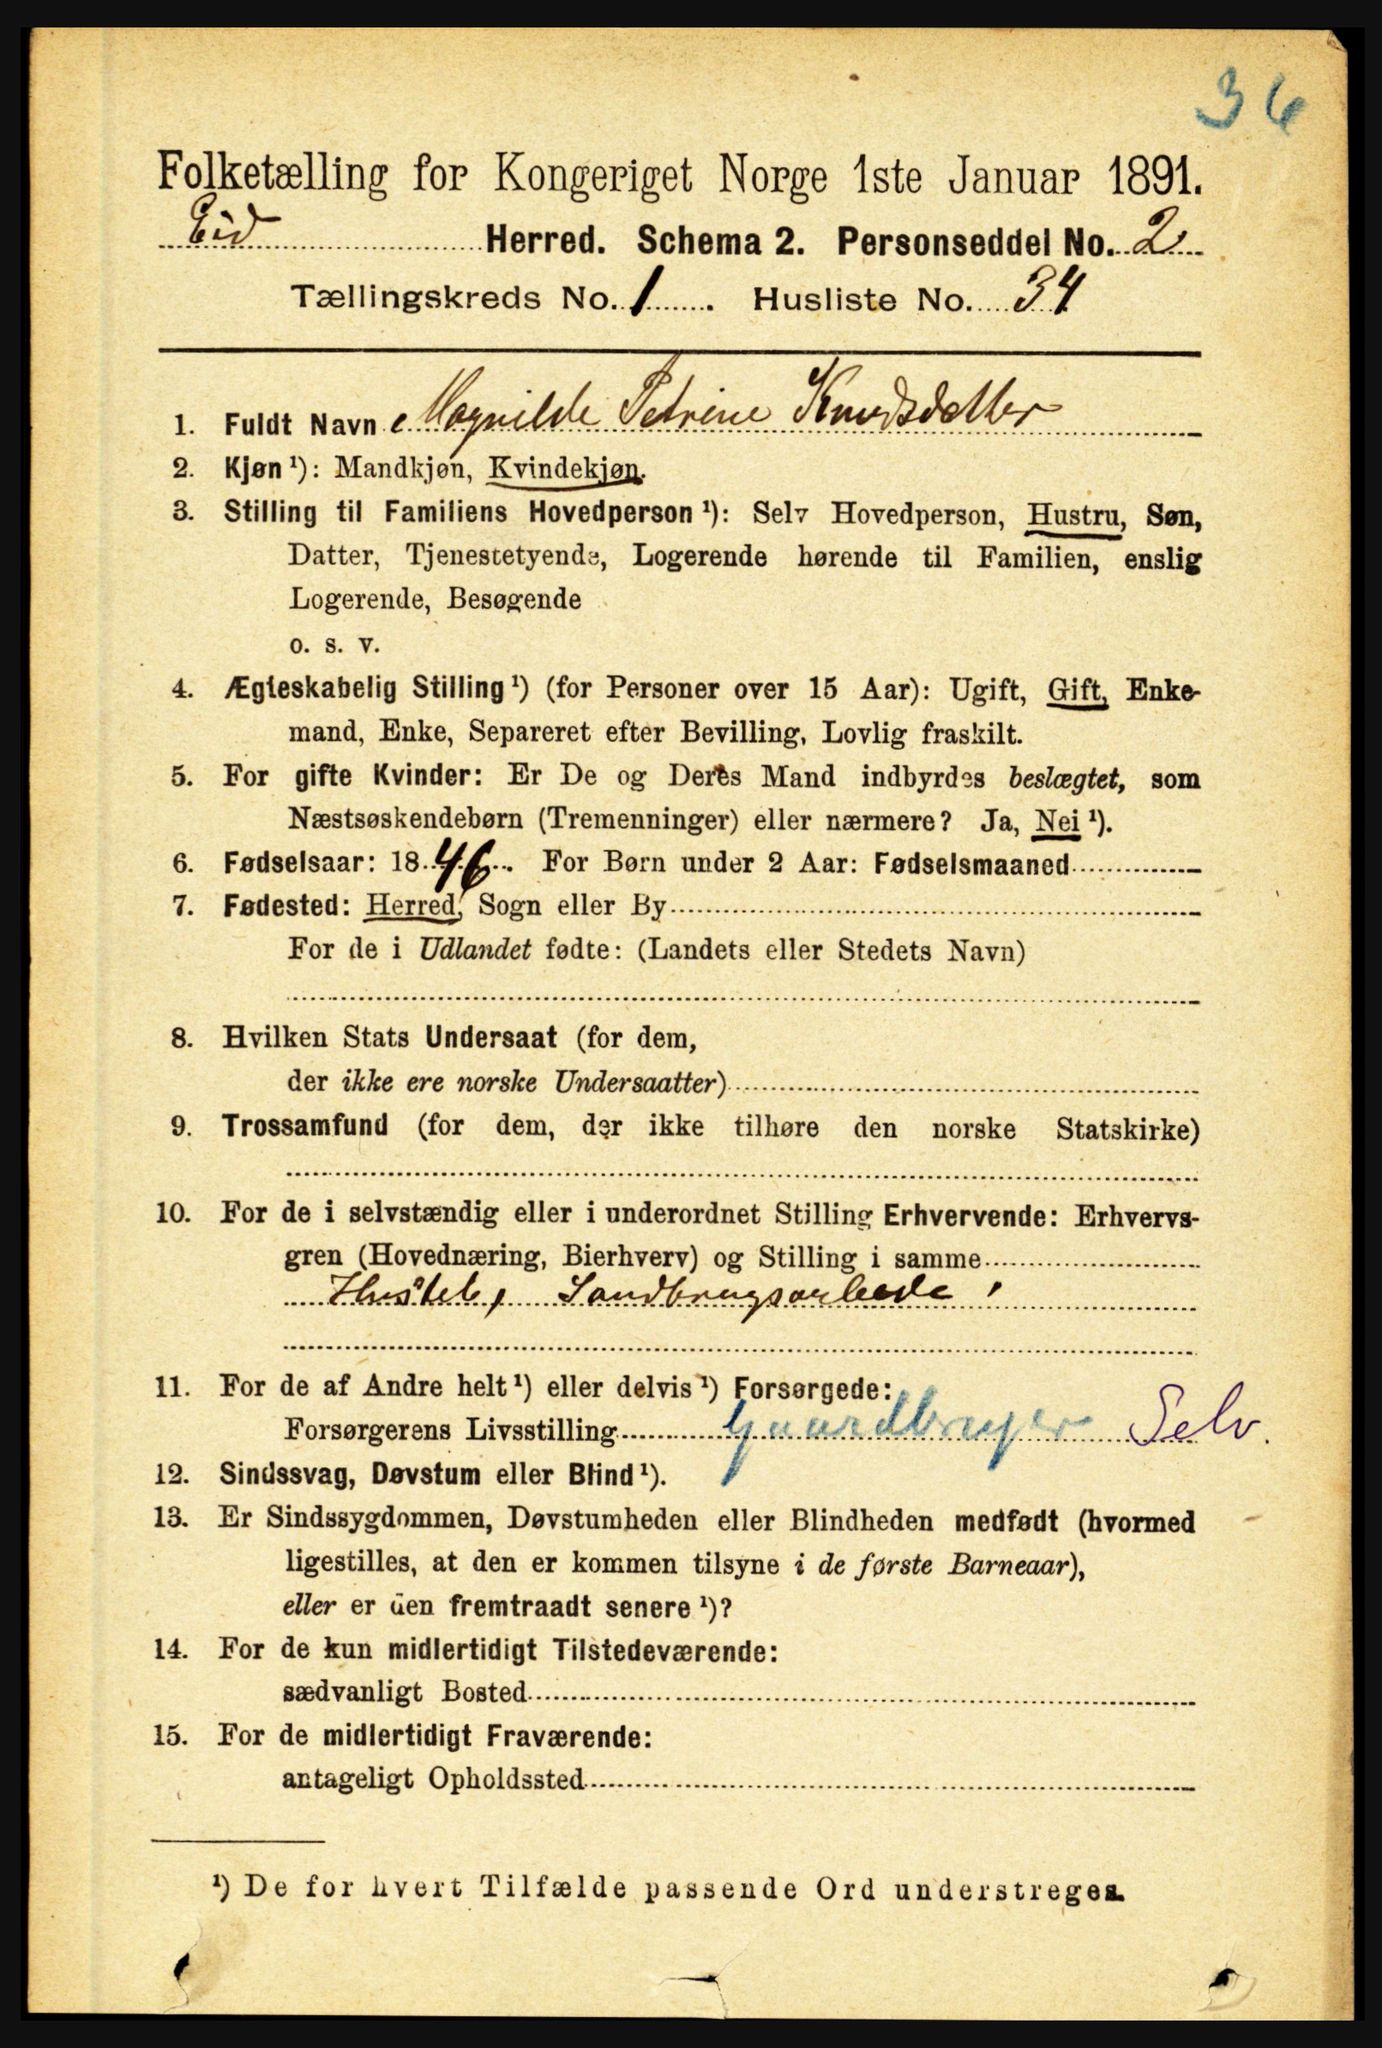 36
Folketælling for Kongeriget Norge 1ste Januar 1891.
Eid Herred. Schema 2. Personseddel No. 2
Tællingskreds No. 1. Husliste No. 34
1. Fuldt Navn Magnilde Petrine Knudsdatter
2. Kjøn ¹): Mandkjøn, Kvindekjøn.
3. Stilling til Familiens Hovedperson ¹): Selv Hovedperson, Hustru, Søn,
Datter, Tjenestetyende, Logerende hørende til Familien, enslig
Logerende, Besøgende
o. s. v.
4. Ægteskabelig Stilling ¹) (for Personer over 15 Aar): Ugift, Gift, Enke-
mand, Enke, Separeret efter Bevilling, Lovlig fraskilt.
5. For gifte Kvinder: Er De og Deres Mand indbyrdes beslægtet, som
Næstsøskendebørn (Tremenninger) eller nærmere? Ja, Nei ¹).
6. Fødselsaar: 1846. For Børn under 2 Aar: Fødselsmaaned
7. Fødested: Herred, Sogn eller By
For de i Udlandet fødte: (Landets eller Stedets Navn)
8. Hvilken Stats Undersaat (for dem,
der ikke ere norske Undersaatter)
9. Trossamfund (for dem, der ikke tilhøre den norske Statskirke)
10. For de i selvstændig eller i underordnet Stilling Erhvervende: Erhvervs-
gren (Hovednæring, Bierhverv) og Stilling i samme
Husstel, Landbrugsarbeide
11. For de af Andre helt ¹) eller delvis ¹) Forsørgede:
Forsørgerens Livsstilling Gaardbruger Selv.
12. Sindssvag, Døvstum eller Blind ¹).
13. Er Sindssygdommen, Døvstumheden eller Blindheden medfødt (hvormed
ligestilles, at den er kommen tilsyne i de første Barneaar),
eller er den fremtraadt senere ¹)?
14. For de kun midlertidigt Tilstedeværende:
sædvanligt Bosted
15. For de midlertidigt Fraværende:
antageligt Opholdssted
¹) De for hvert Tilfælde passende Ord understreges.